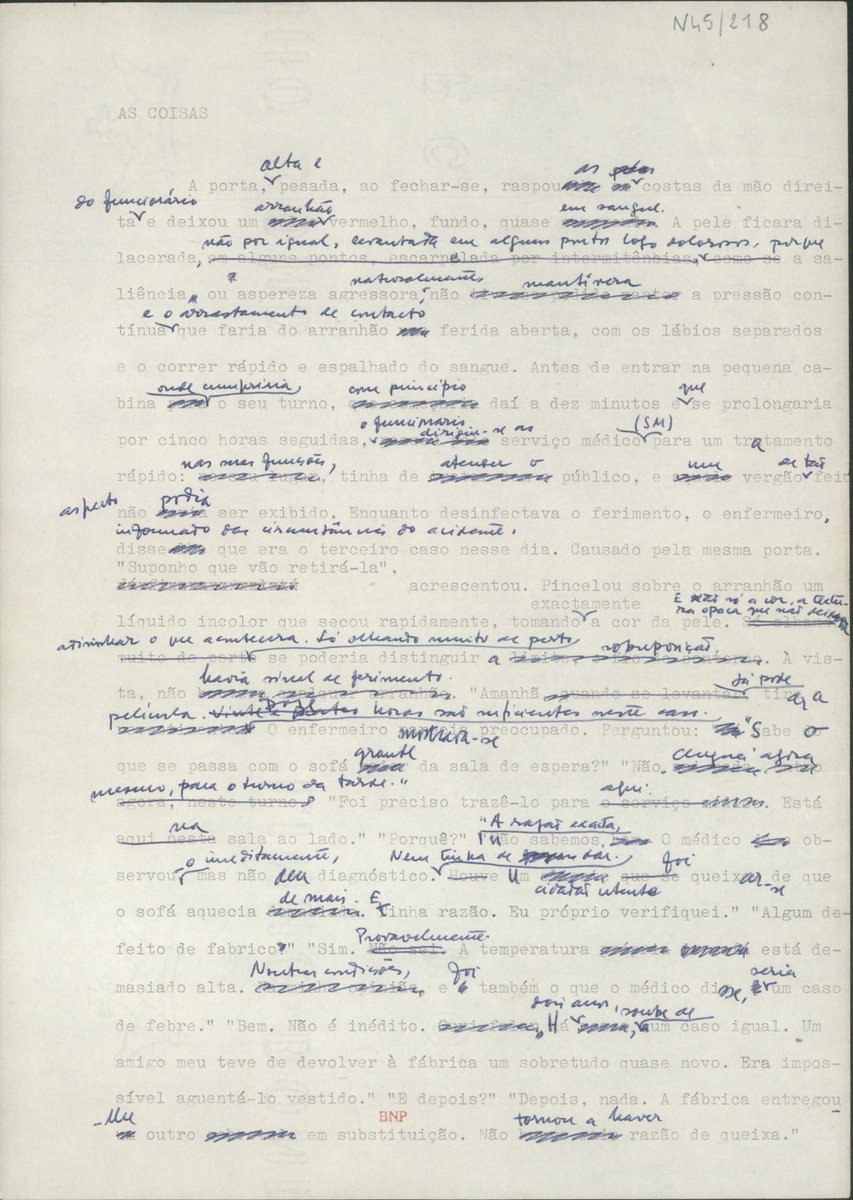 N45/218
AS COISAS
alta e as
A porta, pesada, ao fechar-se, raspou costas da mão direi-
do funcionário arranhão em sangue.
ta e deixou um vermelho, fundo, quase A pele ficara di-
não por igual, levantada em alguns pontos logo dolorosos, porque
lacerada, em alguns pontos, escarpelada por intermitências, como se a sa-
naturalmente mantivera
liência, ou aspereza agressora, não a pressão con-
e o arrastamento de contacto
tínua que faria do arranhão ferida aberta, com os lábios separados
e o correr rápido e espalhado do sangue. Antes de entrar na pequena ca-
onde cumpriria, com princípio que
bina o seu turno, daí a dez minutos e se prolongaria
o funcionário dirigiu-se ao (SM)
por cinco horas seguidas, serviço médico para um tratamento
nas suas funções, atender o um de tão
rápido: tinha de público, e vergão feio
aspecto podia
não ser exibido. Enquanto desinfectava o ferimento, o enfermeiro,
informado das circunstâncias do acidente,
disse que era o terceiro caso nesse dia. Causado pela mesma porta.
"Suponho que vão retirá-la",
acrescentou. Pincelou sobre o arranhão um
exactamente E não só a cor, a textu-
ra opaca que não deixava
líquido incolor que secou rapidamente, tomando a cor da pele. Só olhando
adivinhar o que acontecera. Só olhando muito de perto, sobreposição.
muito de perto se poderia distinguir a À vis-
havia sinal de ferimento. Já pode
ta, não "Amanhã quando se levantar tir
ar a
película. Doze horas são suficientes neste caso.
O enfermeiro preocupado. Perguntou: "Sabe o
mostrava-se
grande Cheguei agora
que se passa com o sofá da sala de espera?" "Não.
mesmo, para o turno da tarde."
agora, neste turno" "Foi preciso trazê-lo para o serviço Está
aqui.
na "A razão exacta,
aqui nesta sala ao lado." "Porquê?" não sabemos, O médico ob-
o imediatamente, Nem tinha de foi
servou, mas não deu diagnóstico. Houve Um que se queixar-se de que
cidadão utente
de mais. E
o sofá aquecia tinha razão. Eu próprio verifiquei." "Algum de-
Provavelmente.
feito de fabrico?" "Sim. Não sei. A temperatura está de-
Noutras condições, foi seria
masiado alta. e também o que o médico disse, um caso
dois anos, soube de
de febre." "Bem. Não é inédito. Há um caso igual. Um
amigo meu teve de devolver à fábrica um sobretudo quase novo. Era impos-
sível aguentá-lo vestido." "E depois?" "Depois, nada. A fábrica entregou
-lhe BNP tornou a haver
outro em substituição. Não razão de queixa."